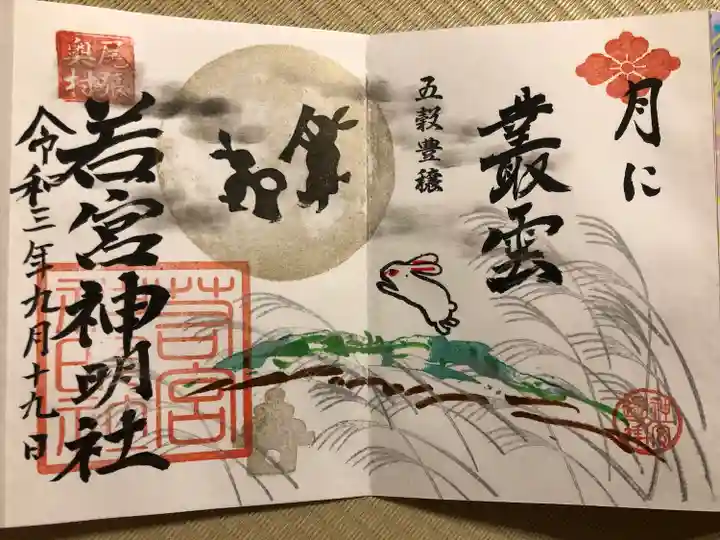 月に
叢雲
五穀豊穣
尾張
奥村
若宮神明社
令和三年九月十九日
若宮